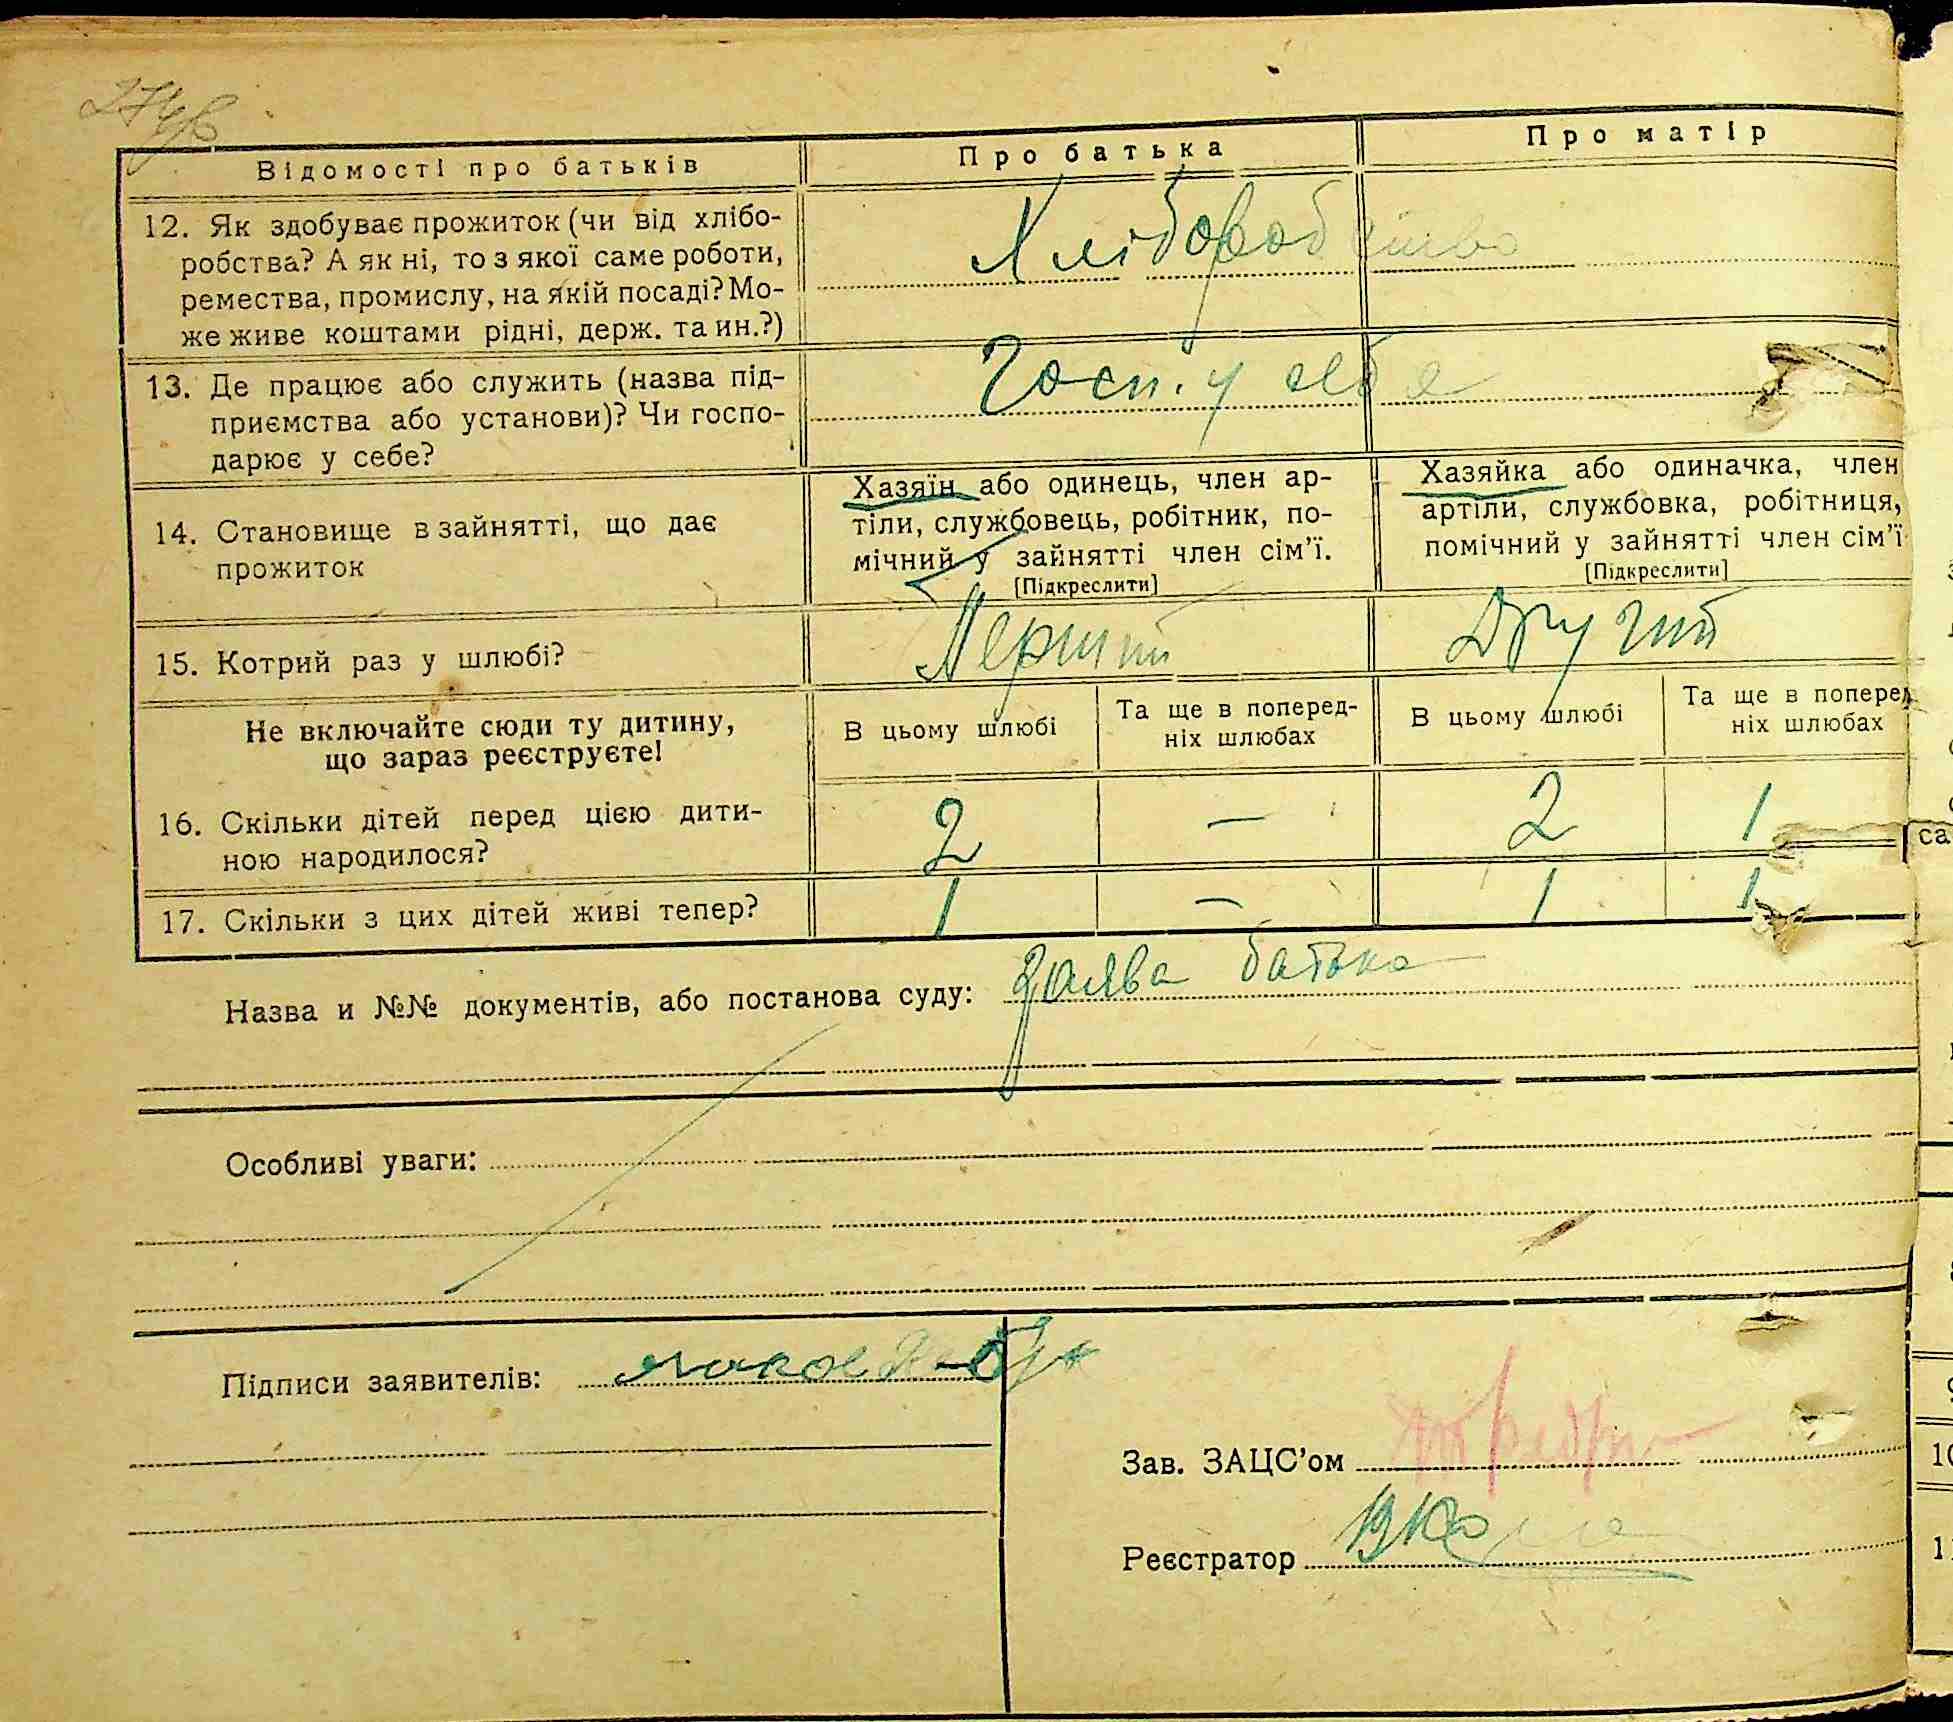 274/в
Відомості про батьків
Про батька
Про матір
12. Як здобуває прожиток (чи від хлібо-
робства? А як ні, то з якої саме роботи,
ремества, промислу, на якій посаді? Мо-
же живе коштами рідні, держ. та ин.?)
Хліборобство
13. Де працює або служить (назва під-
приємства або установи)? Чи госпо-
дарює у себе?
Госп. у себе
14. Становище в зайнятті, що дає
прожиток
Хазяїн або одинець, член ар-
тіли, службовець, робітник, по-
мічний у зайнятті член сім'ї.
[Підкреслити]
Хазяйка або одиначка, член
артіли, службовка, робітниця,
помічний у зайнятті член сім'ї
[Підкреслити]
15. Котрий раз у шлюбі?
Перший
Другий
Не включайте сюди ту дитину,
що зараз реєструєте!
В цьому шлюбі
Та ще в поперед-
ніх шлюбах
В цьому шлюбі
Та ще в поперед
ніх шлюбах
16. Скільки дітей перед цією дити-
ною народилося?
2
–
2
1
17. Скільки з цих дітей живі тепер?
1
–
1
1
Назва и №№ документів, або постанова суду: Заява батька
Особливі уваги:
Підписи заявителів:
Зав. ЗАЦС'ом
Реєстратор
са
10
11